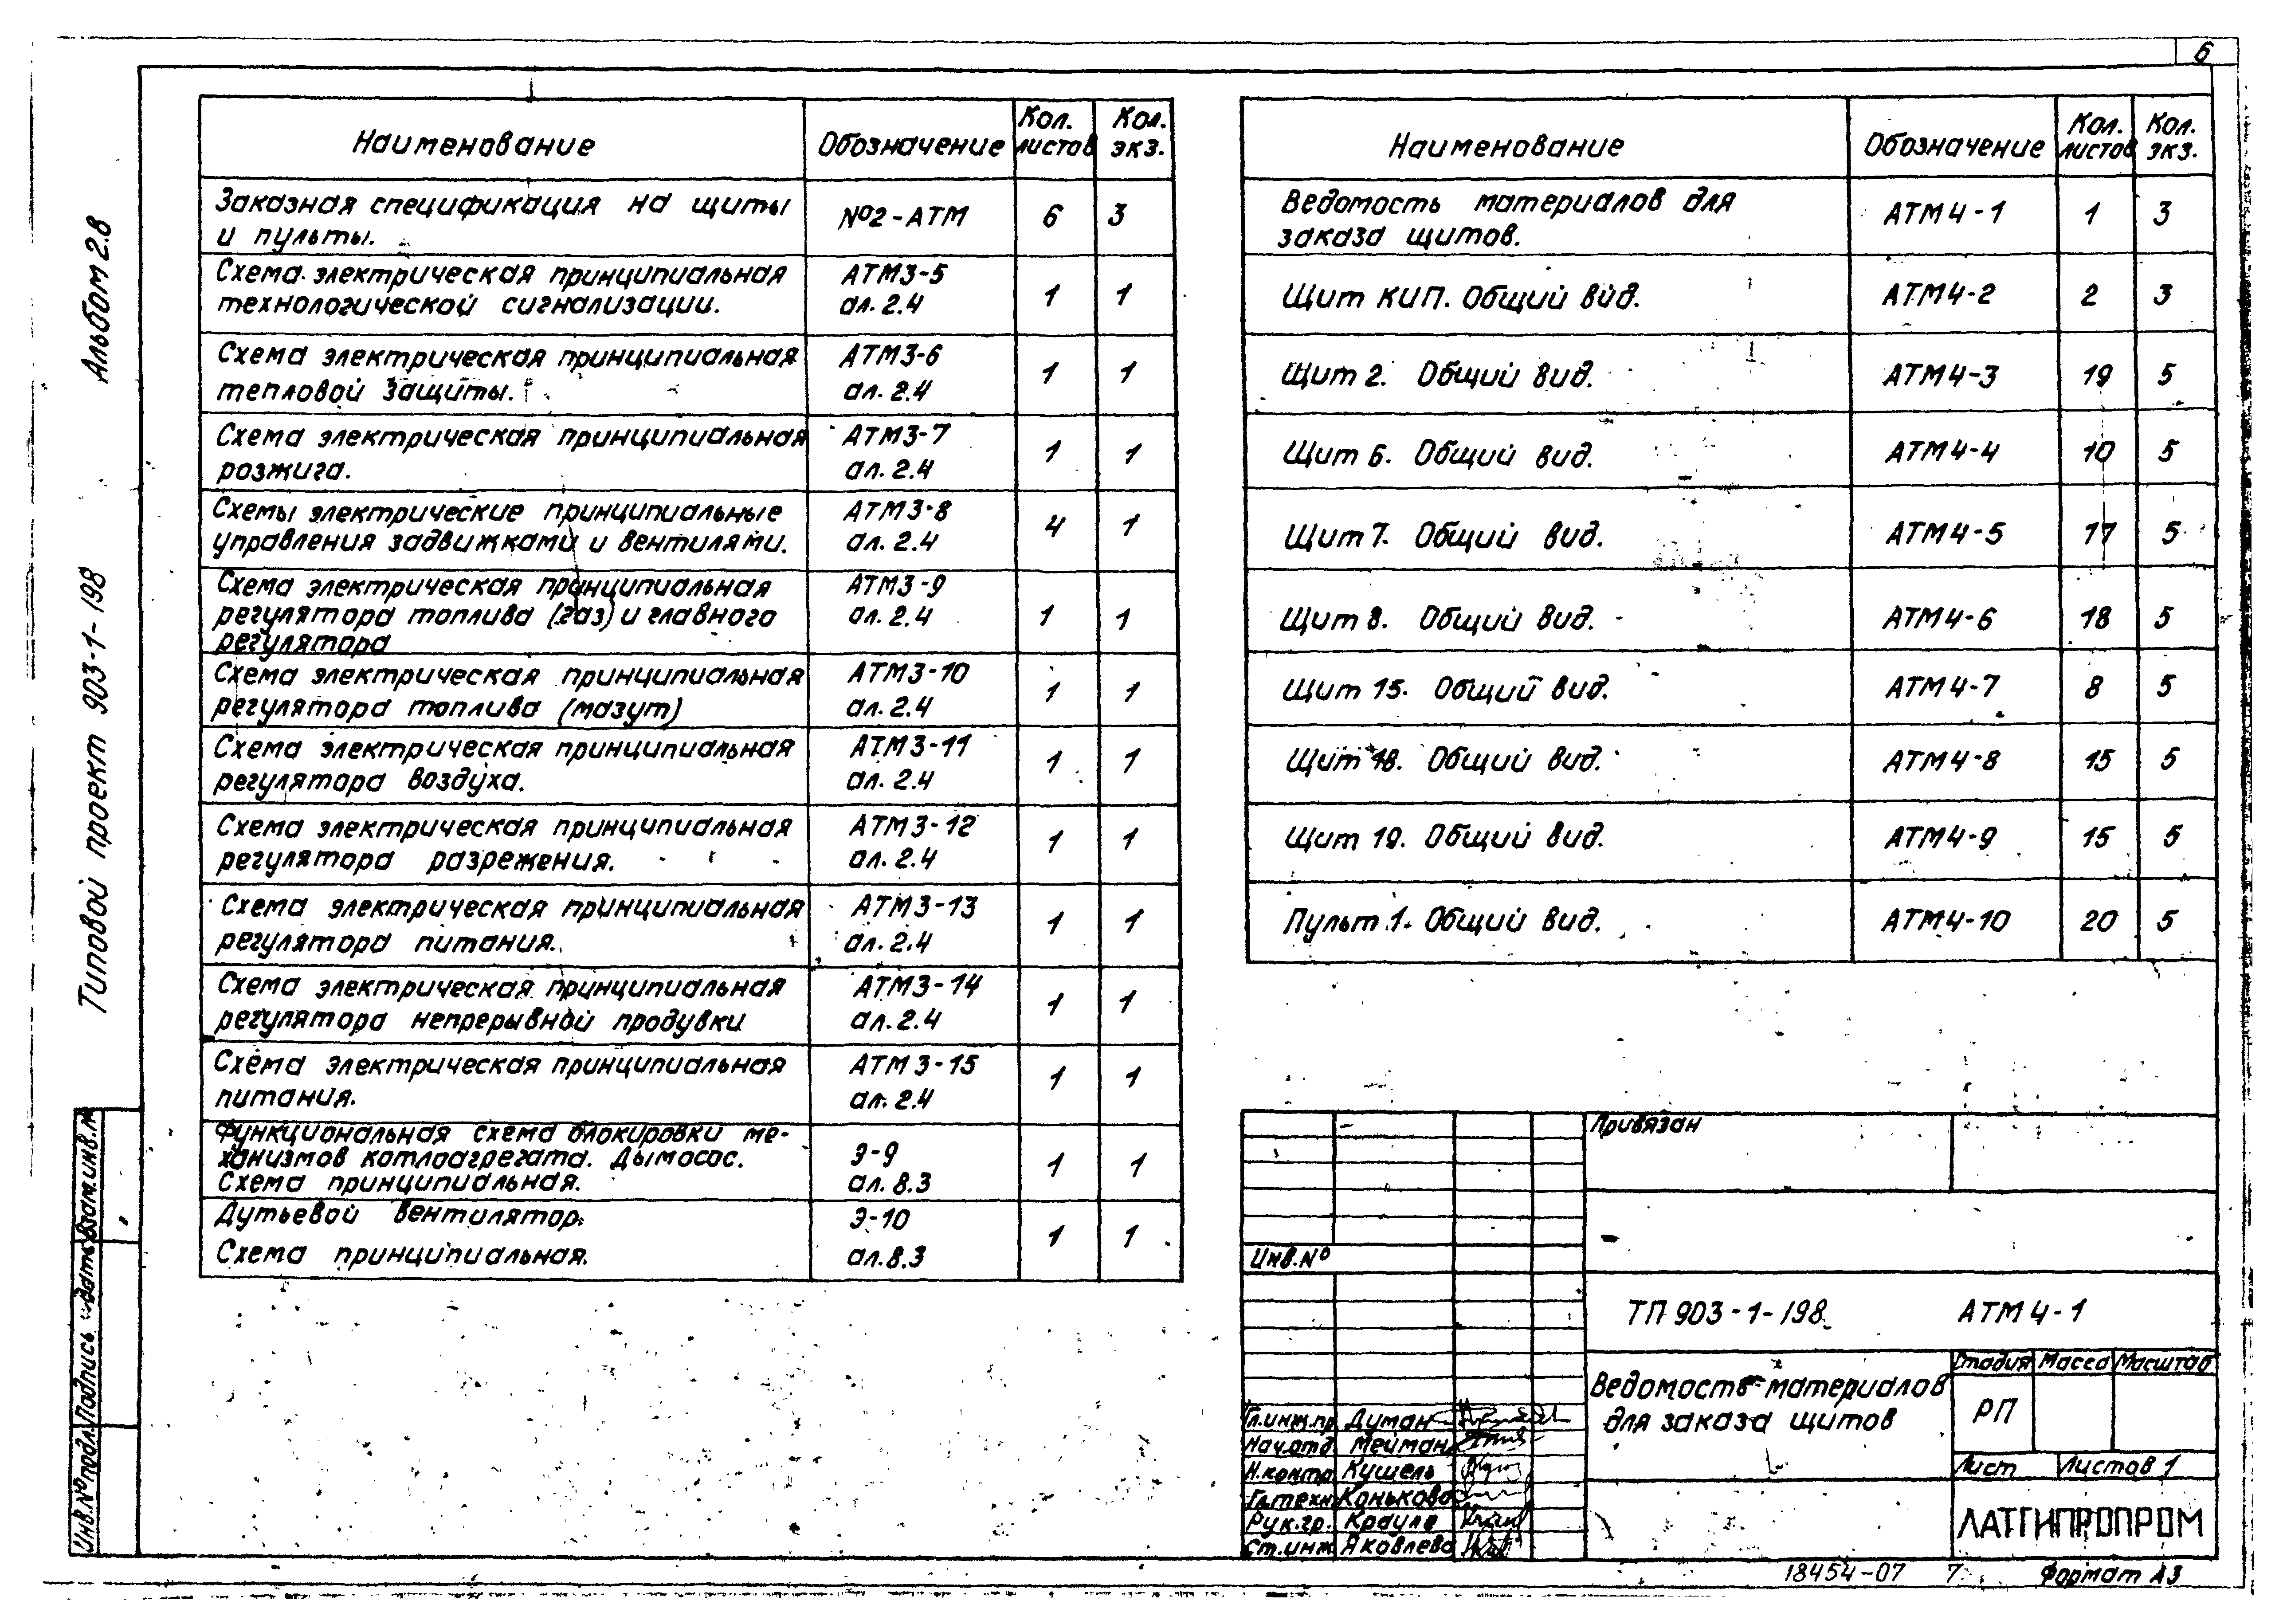 6
Альбом 2.8
Типовой проект 903-1-198
Наименование Обозначение Кол. листов Кол. экз.
Заказная спецификация на щиты №2-АТМ 6 3
и пульты.
Схема электрическая принципиальная АТМ3-5 1 1
технологической сигнализации. ал. 2.4
Схема электрическая принципиальная АТМ3-6 1 1
тепловой защиты. ал. 2.4
Схема электрическая принципиальная АТМ3-7 1 1
розжига. ал. 2.4
Схемы электрические принципиальные АТМ3-8 4 1
управления задвижками и вентилями. ал. 2.4
Схема электрическая принципиальная АТМ3-9
регулятора топлива (газ) и главного ал. 2.4 1 1
регулятора
Схема электрическая принципиальная АТМ3-10 1 1
регулятора топлива (мазут) ал. 2.4
Схема электрическая принципиальная АТМ3-11 1 1
регулятора воздуха. ал. 2.4
Схема электрическая принципиальная АТМ3-12 1 1
регулятора разрежения. ал. 2.4
Схема электрическая принципиальная АТМ3-13 1 1
регулятора питания. ал. 2.4
Схема электрическая принципиальная АТМ3-14 1 1
регулятора непрерывной продувки ал. 2.4
Схема электрическая принципиальная АТМ3-15 1 1
питания. ал. 2.4
Функциональная схема блокировки ме-
ханизмов котлоагрегата. Дымосос. Э-9 1 1
Схема принципиальная. ал. 8.3
Дутьевой вентилятор. Э-10 1 1
Схема принципиальная. ал. 8.3
Наименование Обозначение Кол. листов Кол. экз.
Ведомость материалов для АТМ4-1 1 3
заказа щитов.
Щит КИП. Общий вид. АТМ4-2 2 3
Щит 2. Общий вид. АТМ4-3 19 5
Щит 6. Общий вид. АТМ4-4 10 5
Щит 7. Общий вид. АТМ4-5 17 5
Щит 8. Общий вид. АТМ4-6 18 5
Щит 15. Общий вид. АТМ4-7 8 5
Щит 18. Общий вид. АТМ4-8 15 5
Щит 19. Общий вид. АТМ4-9 15 5
Пульт 1. Общий вид. АТМ4-10 20 5
Привязан
Инв. №
ТП 903-1-198 АТМ4-1
Ведомость материалов
для заказа щитов
Стадия Масса Масштаб
РП
Лист Листов 1
ЛАТГИПРОПРОМ
Гл.инж.пр. Думан
Нач.отд. Мейман
Н.контр. Кушель
Гл.техн. Конькова
Рук.гр. Крауле
Ст.инж. Яковлева
Инв. № подл. Подпись и дата Взам. инв. №
18454-07 7 Формат А3